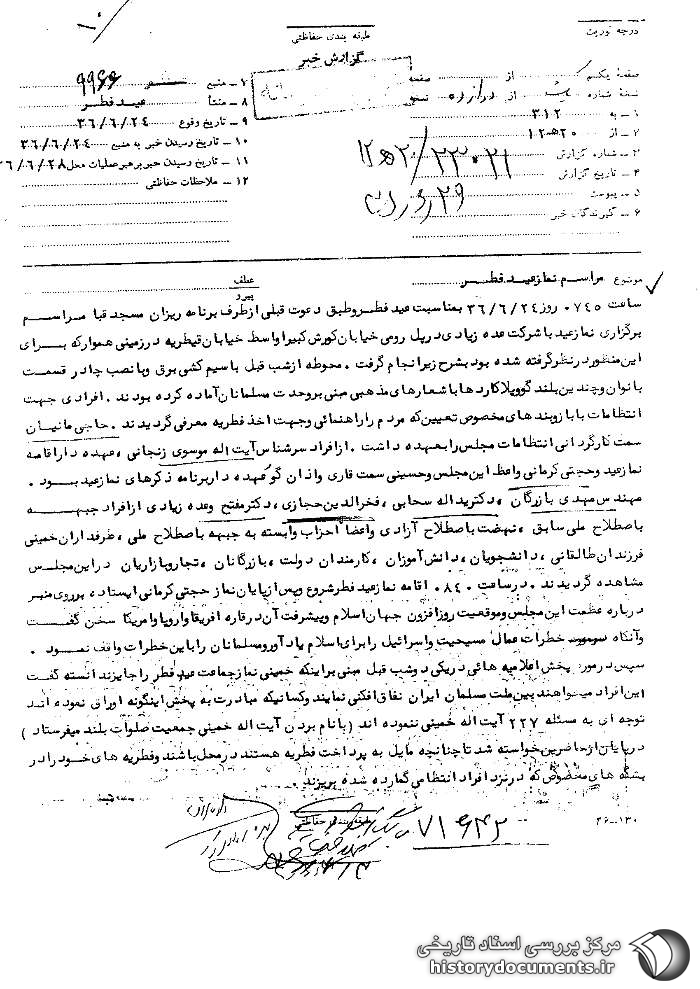 درجه فوریت
طبقه بندی حفاظتی
گزارش خبر
صفحه یکم از صفحه
نسخه شماره یک از دوازده نسخه
۱ ـ به ۳۱۲
۲ ـ از ۲۰ ه‍ ۱۲
۳ ـ شماره گزارش ۲۳۰۲۱/۲۰ ه‍ ۱۲
۴ ـ تاریخ گزارش
۵ ـ پیوست
۶ ـ گیرندگان خبر
۷ ـ منبع ۹۹۶۶
۸ ـ منشأ عید فطر
۹ ـ تاریخ وقوع ۳۶/۶/۲۴
۱۰ ـ تاریخ رسیدن خبر به منبع ۳۶/۶/۲۴
۱۱ ـ تاریخ رسیدن خبر برهبر عملیات محل ۳۶/۶/۲۸
۱۲ ـ ملاحظات حفاظتی
موضوع مراسم نماز عید فطر
عطف
پیرو
ساعت ۰۷۴۵ روز ۳۶/۶/۲۴ بمناسبت عید فطر و طبق دعوت قبلی از طرف برنامه ریزان مسجد قبا مراسم
برگزاری نماز عید با شرکت عده زیادی در پل رومی خیابان کورش کبیر اواسط خیابان قیطریه در زمینی هموار که برای
این منظور در نظر گرفته شده بود بشرح زیر انجام گرفت . محوطه از شب قبل با سیم کشی برق و با نصب چادر قسمت
بانوان و چندین بلند گو و پلاکاردها با شعارهای مذهبی مبنی بر وحدت مسلمانان آماده کرده بودند . افرادی جهت
انتظامات با بازوبندهای مخصوص تعیین که مردم را راهنمائی وجهت اخذ فطریه معرفی گردیدند . حاجی مانیان
سمت کارگردانی انتظامات مجلس را بعهده داشت . از افراد سرشناس آیت اله موسوی زنجانی ، عهده دار اقامه
نماز عید و حجتی کرمانی واعظ این مجلس وحسینی سمت قاری و اذان گو عهده دار برنامه ذکرهای نماز عید بود .
مهندس مهدی بازرگان ، دکتر یداله سحابی ، فخرالدین حجازی ، دکتر مفتح وعده زیادی از افراد جبهه
باصطلاح ملی سابق ، نهضت باصطلاح آزادی واعضا احزاب وابسته به جبهه باصطلاح ملی ، طرفداران خمینی
فرزندان طالقانی ، دانشجویان ، دانش آموزان ، کارمندان دولت ، بازرگانان ، تجار و بازاریان در این مجلس
مشاهده گردیدند . در ساعت ۰۸۴۰ اقامه نماز عید فطر شروع وپس از پایان نماز حجتی کرمانی ایستاده برروی منبر
درباره عظمت این مجلس و موقعیت روز افزون جهان اسلام و پیشرفت آن در قاره افریقا و اروپا وامریکا سخن گفت
وآنگاه خطرات عمال مسیحیت و اسرائیل را برای اسلام یادآور ومسلمانان را باین خطرات واقف نمود .
سپس در مورد پخش اعلامیه هائی در یکی دو شب قبل مبنی براینکه خمینی نماز جماعت عید فطر را جایز ندانسته گفت
این افراد میخواهند بین ملت مسلمان ایران نفاق افکنی نمایند وکسانیکه مبادرت به پخش اینگونه اوراق نموده اند
توجه ای به مسئله ۲۲۷ آیت اله خمینی ننموده اند ( با نام بردن آیت اله خمینی جمعیت صلوات بلند میفرستاد )
در پایان از حاضرین خواسته شد تا چنانچه مایل به پرداخت فطریه هستند در محل باشند وفطریه های خود را در
بشکه های مخصوص که در نزد افراد انتظامی گمارده شده بریزند .
طبقه بندی حفاظتی
۷۱۶۴۲
۱۳۰ـ۳۶
مرکز بررسی اسناد تاریخی
historydocuments.ir